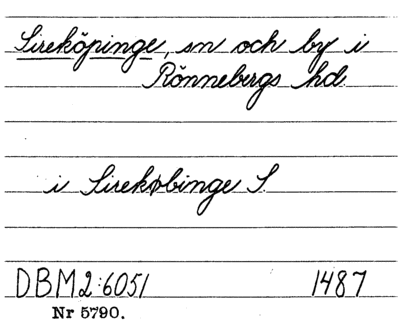 Sireköpinge, sn och by i
Rönnebergs hd.
i Sirekøbinge S
DBM2:6051 1487
Nr 5790.